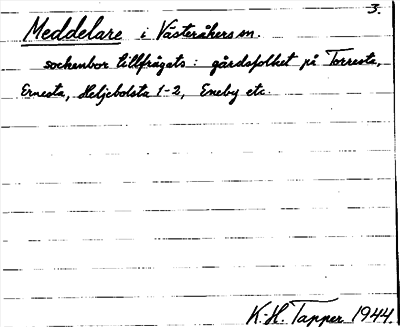 3.
Meddelare i Västeråkers sn.
sockenbor tillfrågats: gårdsfolket på Torresta,
Ernesta, Heljebolsta 1-2, Eneby etc.
K.-H. Tapper 1944.